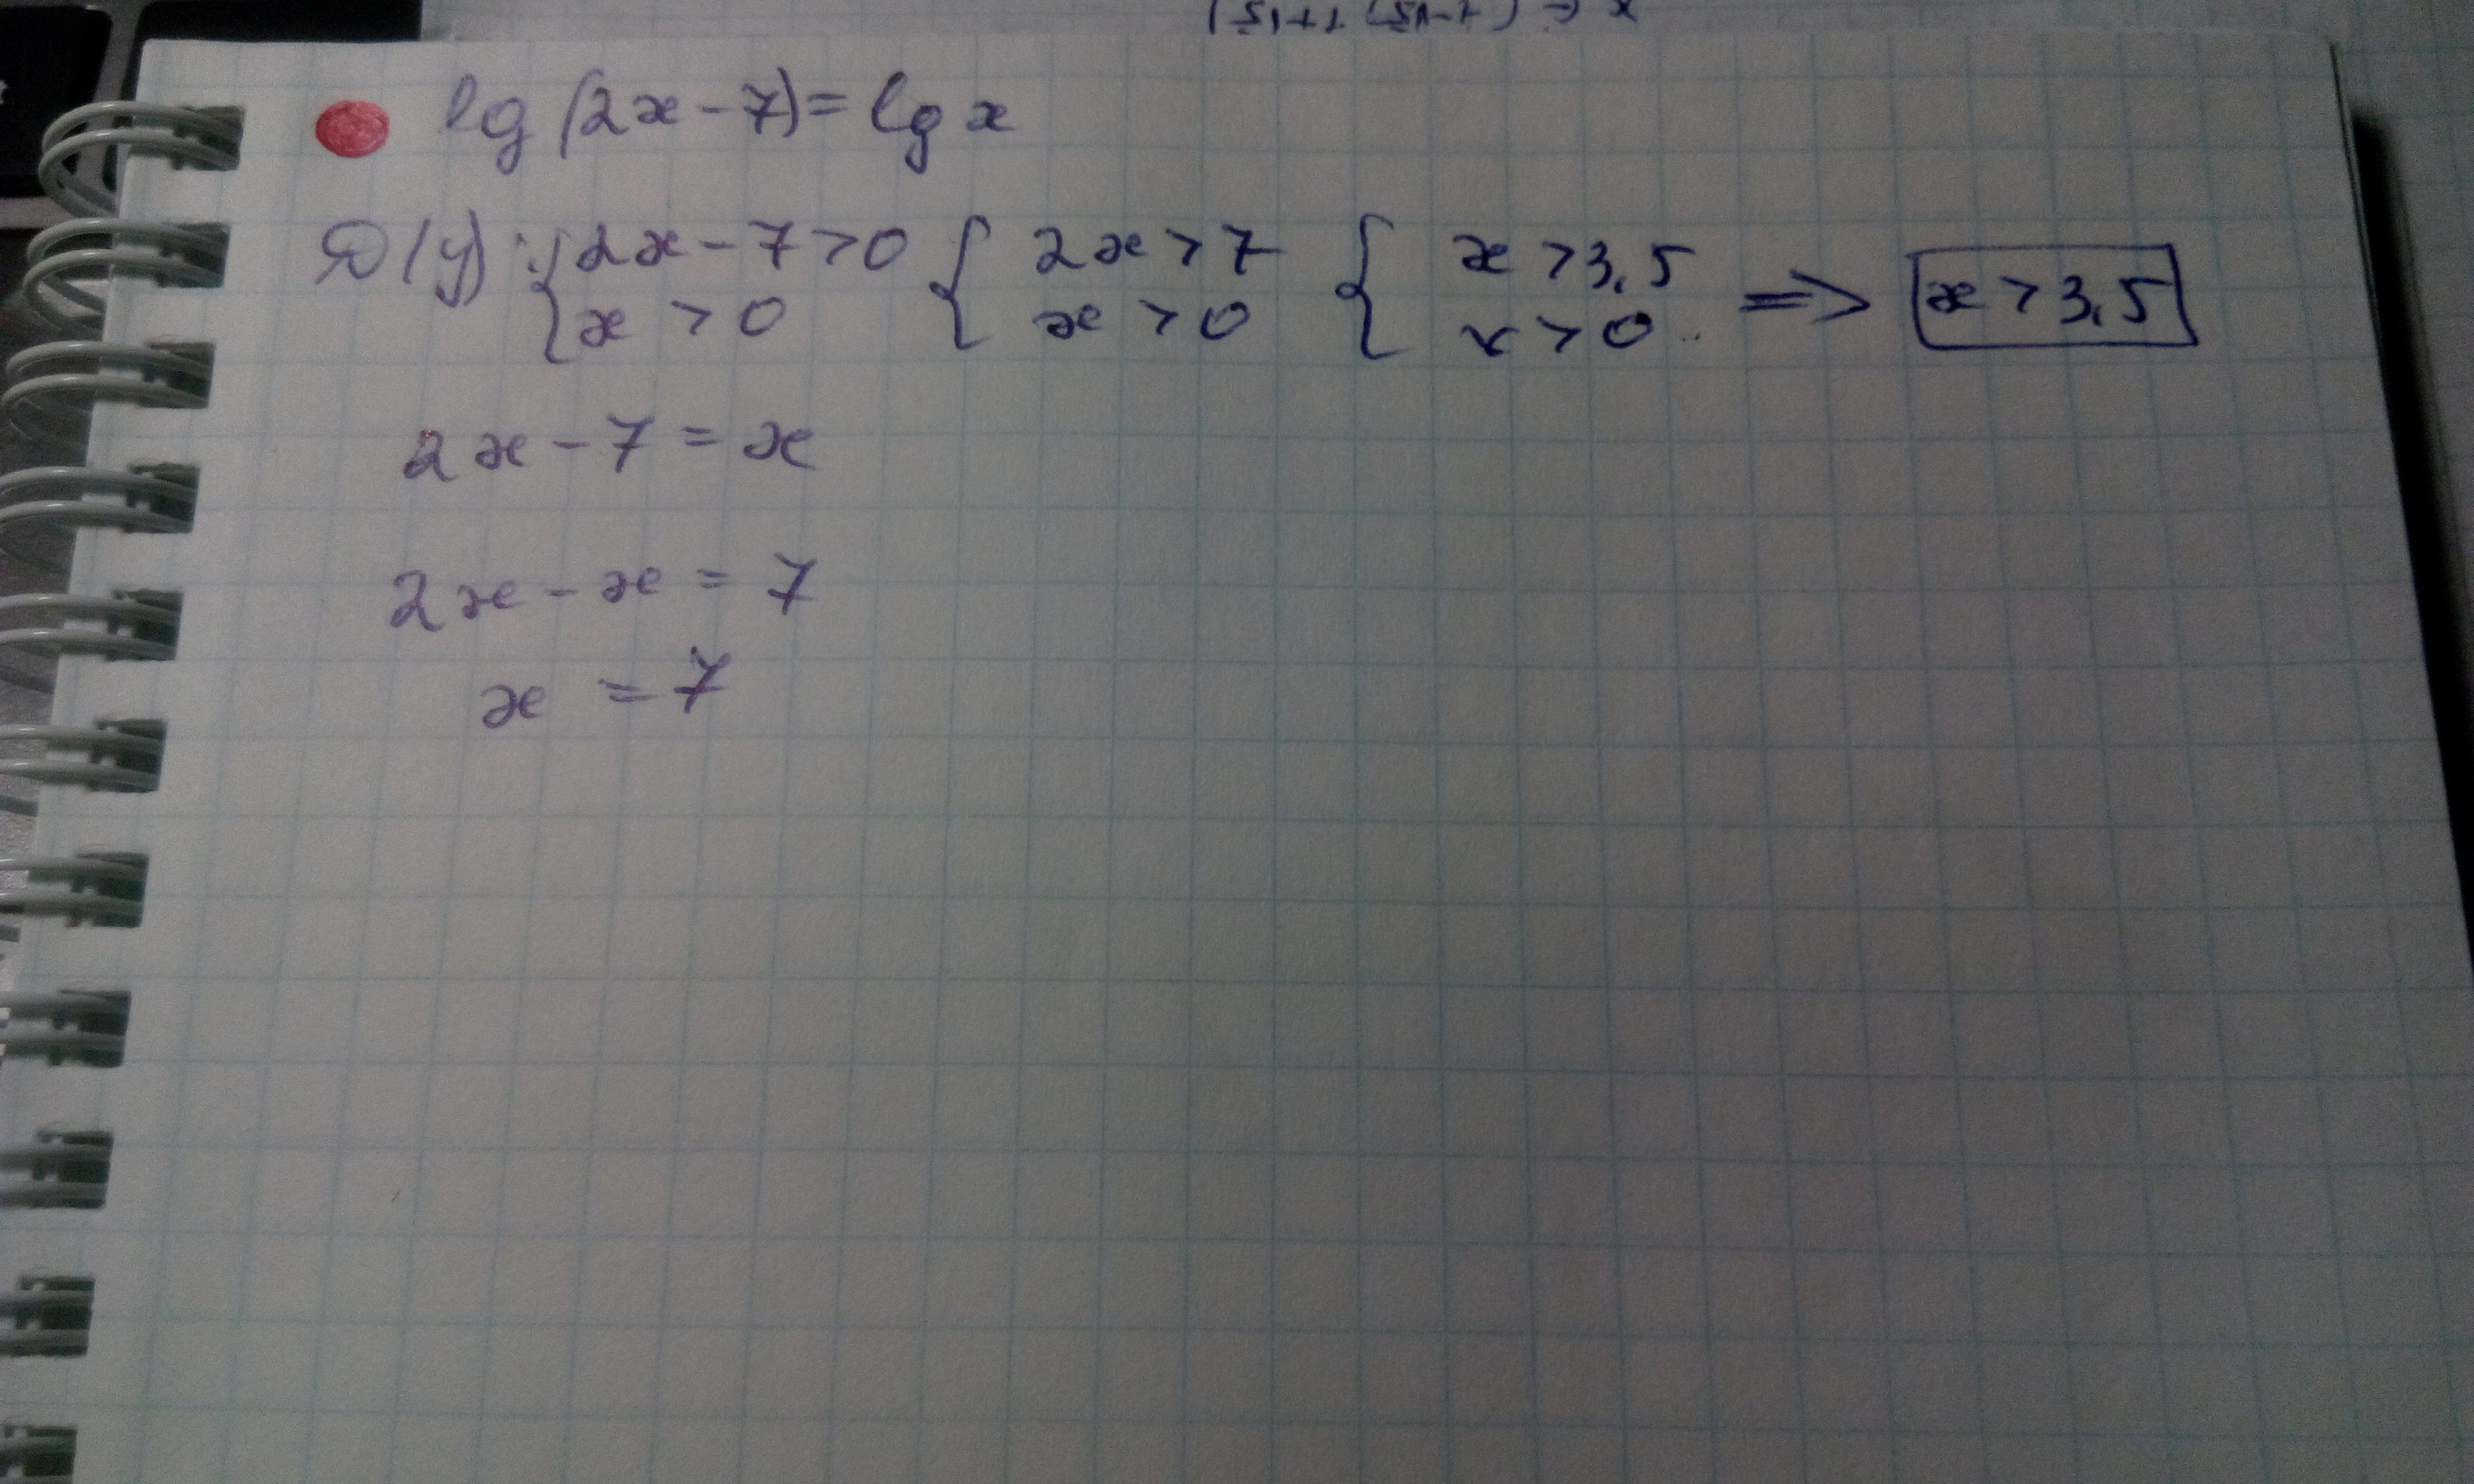 lg (2x - 7) = lg x
D(y): { 2x - 7 > 0 { 2x > 7 { x > 3,5 => x > 3,5
x > 0 x > 0 x > 0
2x - 7 = x
2x - x = 7
x = 7